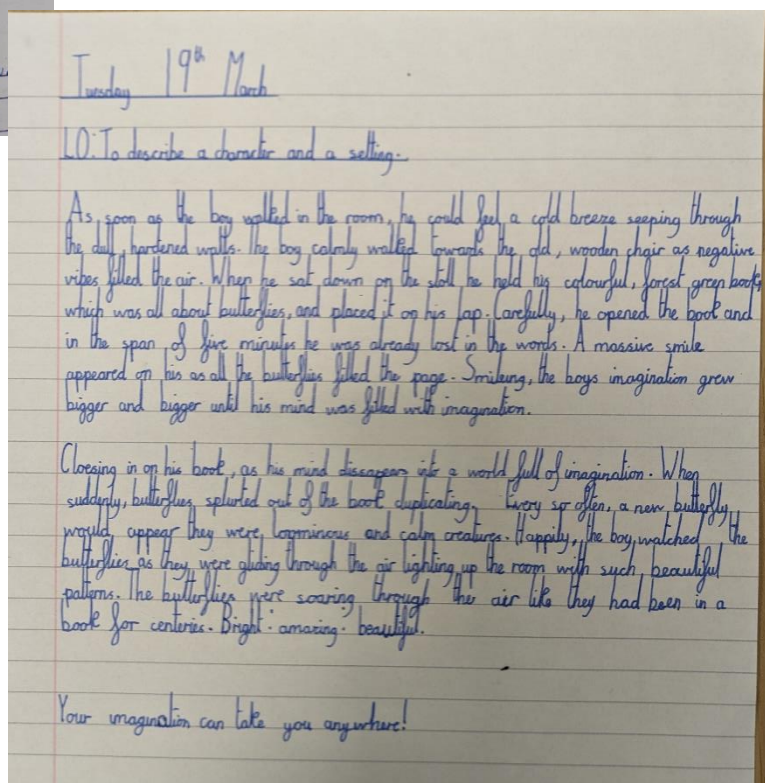 Tuesday 19th March
LO: To describe a character and a setting.
As soon as the boy walked in the room, he could feel a cold breeze seeping through
the dull, hardened walls. The boy calmly walked towards the old, wooden chair as negative
vibes filled the air. When he sat down on the stoll he held his colourful, forest green book,
which was all about butterflies, and placed it on his lap. Carefully, he opened the book and
in the span of five minutes he was already lost in the words. A massive smile
appeared on his as all the butterflies filled the page. Smileing, the boys imagination grew
bigger and bigger until his mind was filled with imagination.
Cloesing in on his book, as his mind dissapears into a world full of imagination. When
suddenly, butterflies splurted out of the book duplicating. Every so often, a new butterfly
would appear they were loominous and calm creatures. Happily, the boy watched the
butterflies as they were gliding through the air lighting up the room with such beautiful
patterns. The butterflies were soaring through the air like they had been in a
book for centeries. Bright. amazing. beautiful.
Your imagination can take you anywhere!